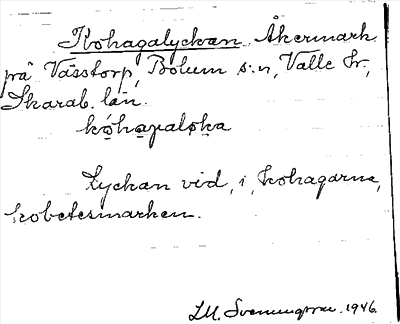 Kohagalyckan Åkermark
på Västtorp, Bolum s:n, Valle hr,
Skarab. län.
Lyckan vid, i, kohagarna,
kobetesmarken.
1946.